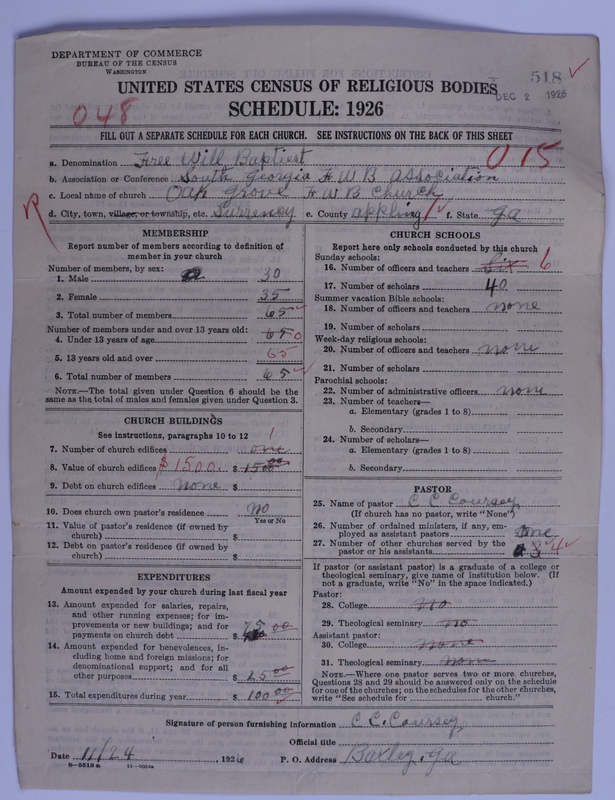 DEPARTMENT OF COMMERCE
BUREAU OF THE CENSUS
WASHINGTON
518
DEC 2 1926
UNITED STATES CENSUS OF RELIGIOUS BODIES
SCHEDULE: 1926
048
FILL OUT A SEPARATE SCHEDULE FOR EACH CHURCH. SEE INSTRUCTIONS ON THE BACK OF THIS SHEET
015
a. Denomination Free Will Baptist
b. Association or Conference South Georgia F W B Association
c. Local name of church Oak Grove F W B Church
R
d. City, town, village, or township, etc. Surrency e. County appling 1 f. State Ga
MEMBERSHIP
Report number of members according to definition of
member in your church
Number of members, by sex:
1. Male 30
2. Female 35
3. Total number of members 65
Number of members under and over 13 years old:
4. Under 13 years of age 65 0
5. 13 years old and over 65
6. Total number of members 65
NOTE.—The total given under Question 6 should be
the same as the total of males and females given under Question 3.
CHURCH BUILDINGS
See instructions, paragraphs 10 to 12
7. Number of church edifices one 1
8. Value of church edifices $1500. $ 1500
9. Debt on church edifices none $
10. Does church own pastor's residence no
Yes or No
11. Value of pastor's residence (if owned by
church) $
12. Debt on pastor's residence (if owned by
church) $
EXPENDITURES
Amount expended by your church during last fiscal year
13. Amount expended for salaries, repairs,
and other running expenses; for im-
provements or new buildings; and for
payments on church debt $ 75 00
14. Amount expended for benevolences, in-
cluding home and foreign missions; for
denominational support; and for all
other purposes $ 25 00
15. Total expenditures during year $ 100 00
CHURCH SCHOOLS
Report here only schools conducted by this church
Sunday schools:
16. Number of officers and teachers Six 6
17. Number of scholars 40
Summer vacation Bible schools:
18. Number of officers and teachers none
19. Number of scholars
Week-day religious schools:
20. Number of officers and teachers none
21. Number of scholars
Parochial schools:
22. Number of administrative officers none
23. Number of teachers—
a. Elementary (grades 1 to 8)
b. Secondary
24. Number of scholars—
a. Elementary (grades 1 to 8)
b. Secondary
PASTOR
25. Name of pastor C C Coursey
(If church has no pastor, write "None")
26. Number of ordained ministers, if any, em-
ployed as assistant pastors none
27. Number of other churches served by the
pastor or his assistants 3 4
If pastor (or assistant pastor) is a graduate of a college or
theological seminary, give name of institution below. (If
not a graduate, write "No" in the space indicated.)
Pastor:
28. College no
29. Theological seminary no
Assistant pastor:
30. College none
31. Theological seminary none
NOTE.—Where one pastor serves two or more churches,
Questions 28 and 29 should be answered only on the schedule
for one of the churches; on the schedules for the other churches,
write "See schedule for church."
Signature of person furnishing information C C. Coursey
Official title
Date 11/24, 1926 P. O. Address Baxley, Ga
8-5518a 11-9004a